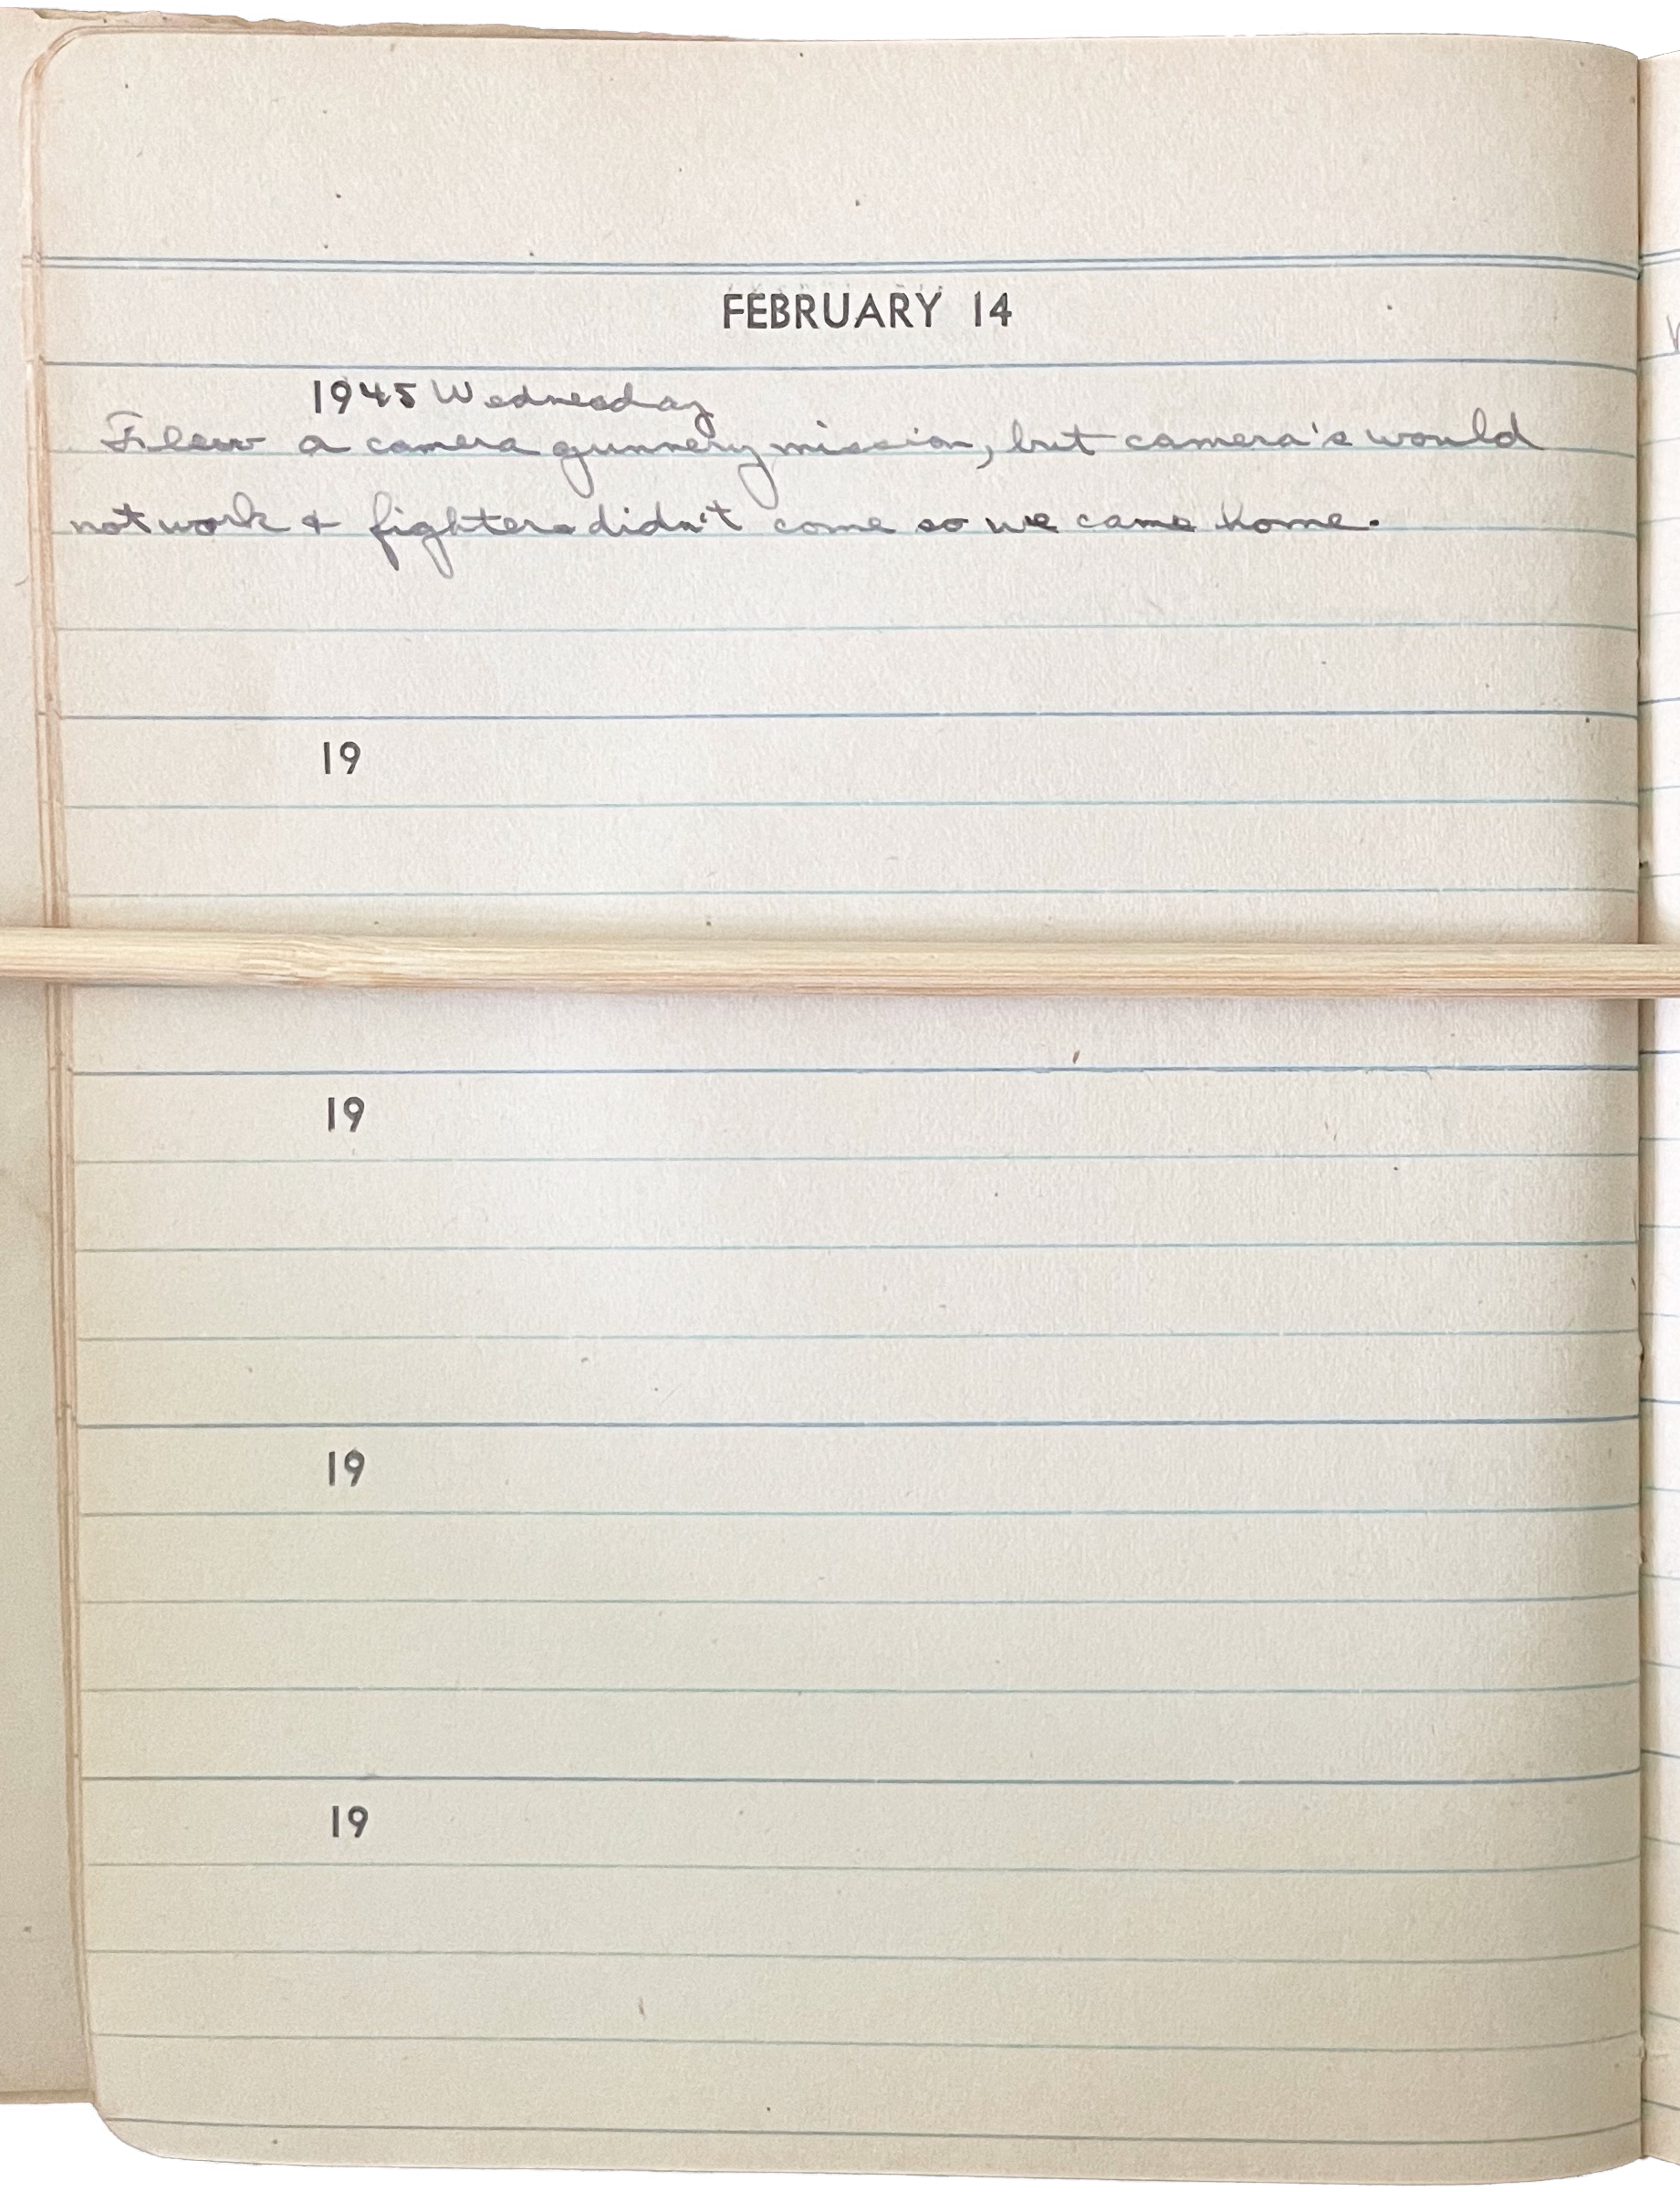 FEBRUARY 14
1945 Wednesday
Flew a camera gunnery mission, but camera's would
not work & fighters didn't come so we came home.
19
19
19
19